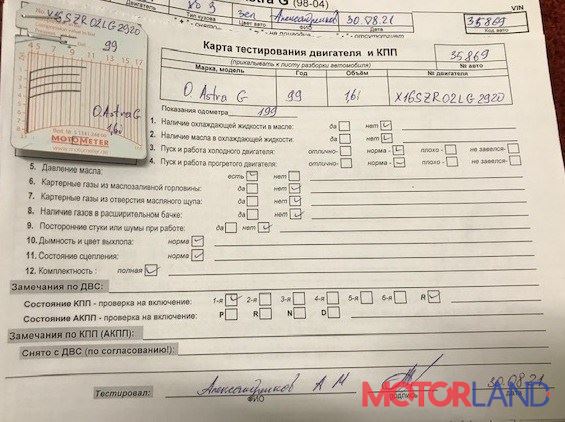 Двигатель
Astra G (98-04)
VIN
№ 3
Тип кузова
зел
Цвет авто
Александриков
ФИО
30.08.21
дата
35869
Код авто
No. X16SZR02LG2920
99
O. Astra G
1,6i
MOTOMETER
Карта тестирования двигателя и КПП
(прикалывать к листу разборки автомобиля)
35869
№ авто
Марка, модель Год Объём № двигателя
O. Astra G 99 1,6i X16SZR02LG2920
Показания одометра 199
1. Наличие охлаждающей жидкости в масле: да нет
2. Наличие масла в охлаждающей жидкости: да нет
3. Пуск и работа холодного двигателя: отлично- норма- плохо- не завелся-
4. Пуск и работа прогретого двигателя: отлично- норма- плохо- не завелся-
5. Давление масла: есть нет
6. Картерные газы из маслозаливной горловины: да нет
7. Картерные газы из отверстия масляного щупа: да нет
8. Наличие газов в расширительном бачке: да нет
9. Посторонние стуки или шумы при работе: да нет
10. Дымность и цвет выхлопа: норма
11. Состояние сцепления: норма
12. Комплектность : полная
Замечания по ДВС:
Состояние КПП - проверка на включение: 1-я 2-я 3-я 4-я 5-я 6-я R
Состояние АКПП - проверка на включение: P R N D
Замечания по КПП (АКПП):
Снято с ДВС (по согласованию!):
Тестировал: Александриков А М 30.08.21
ФИО подпись дата
MOTORLAND